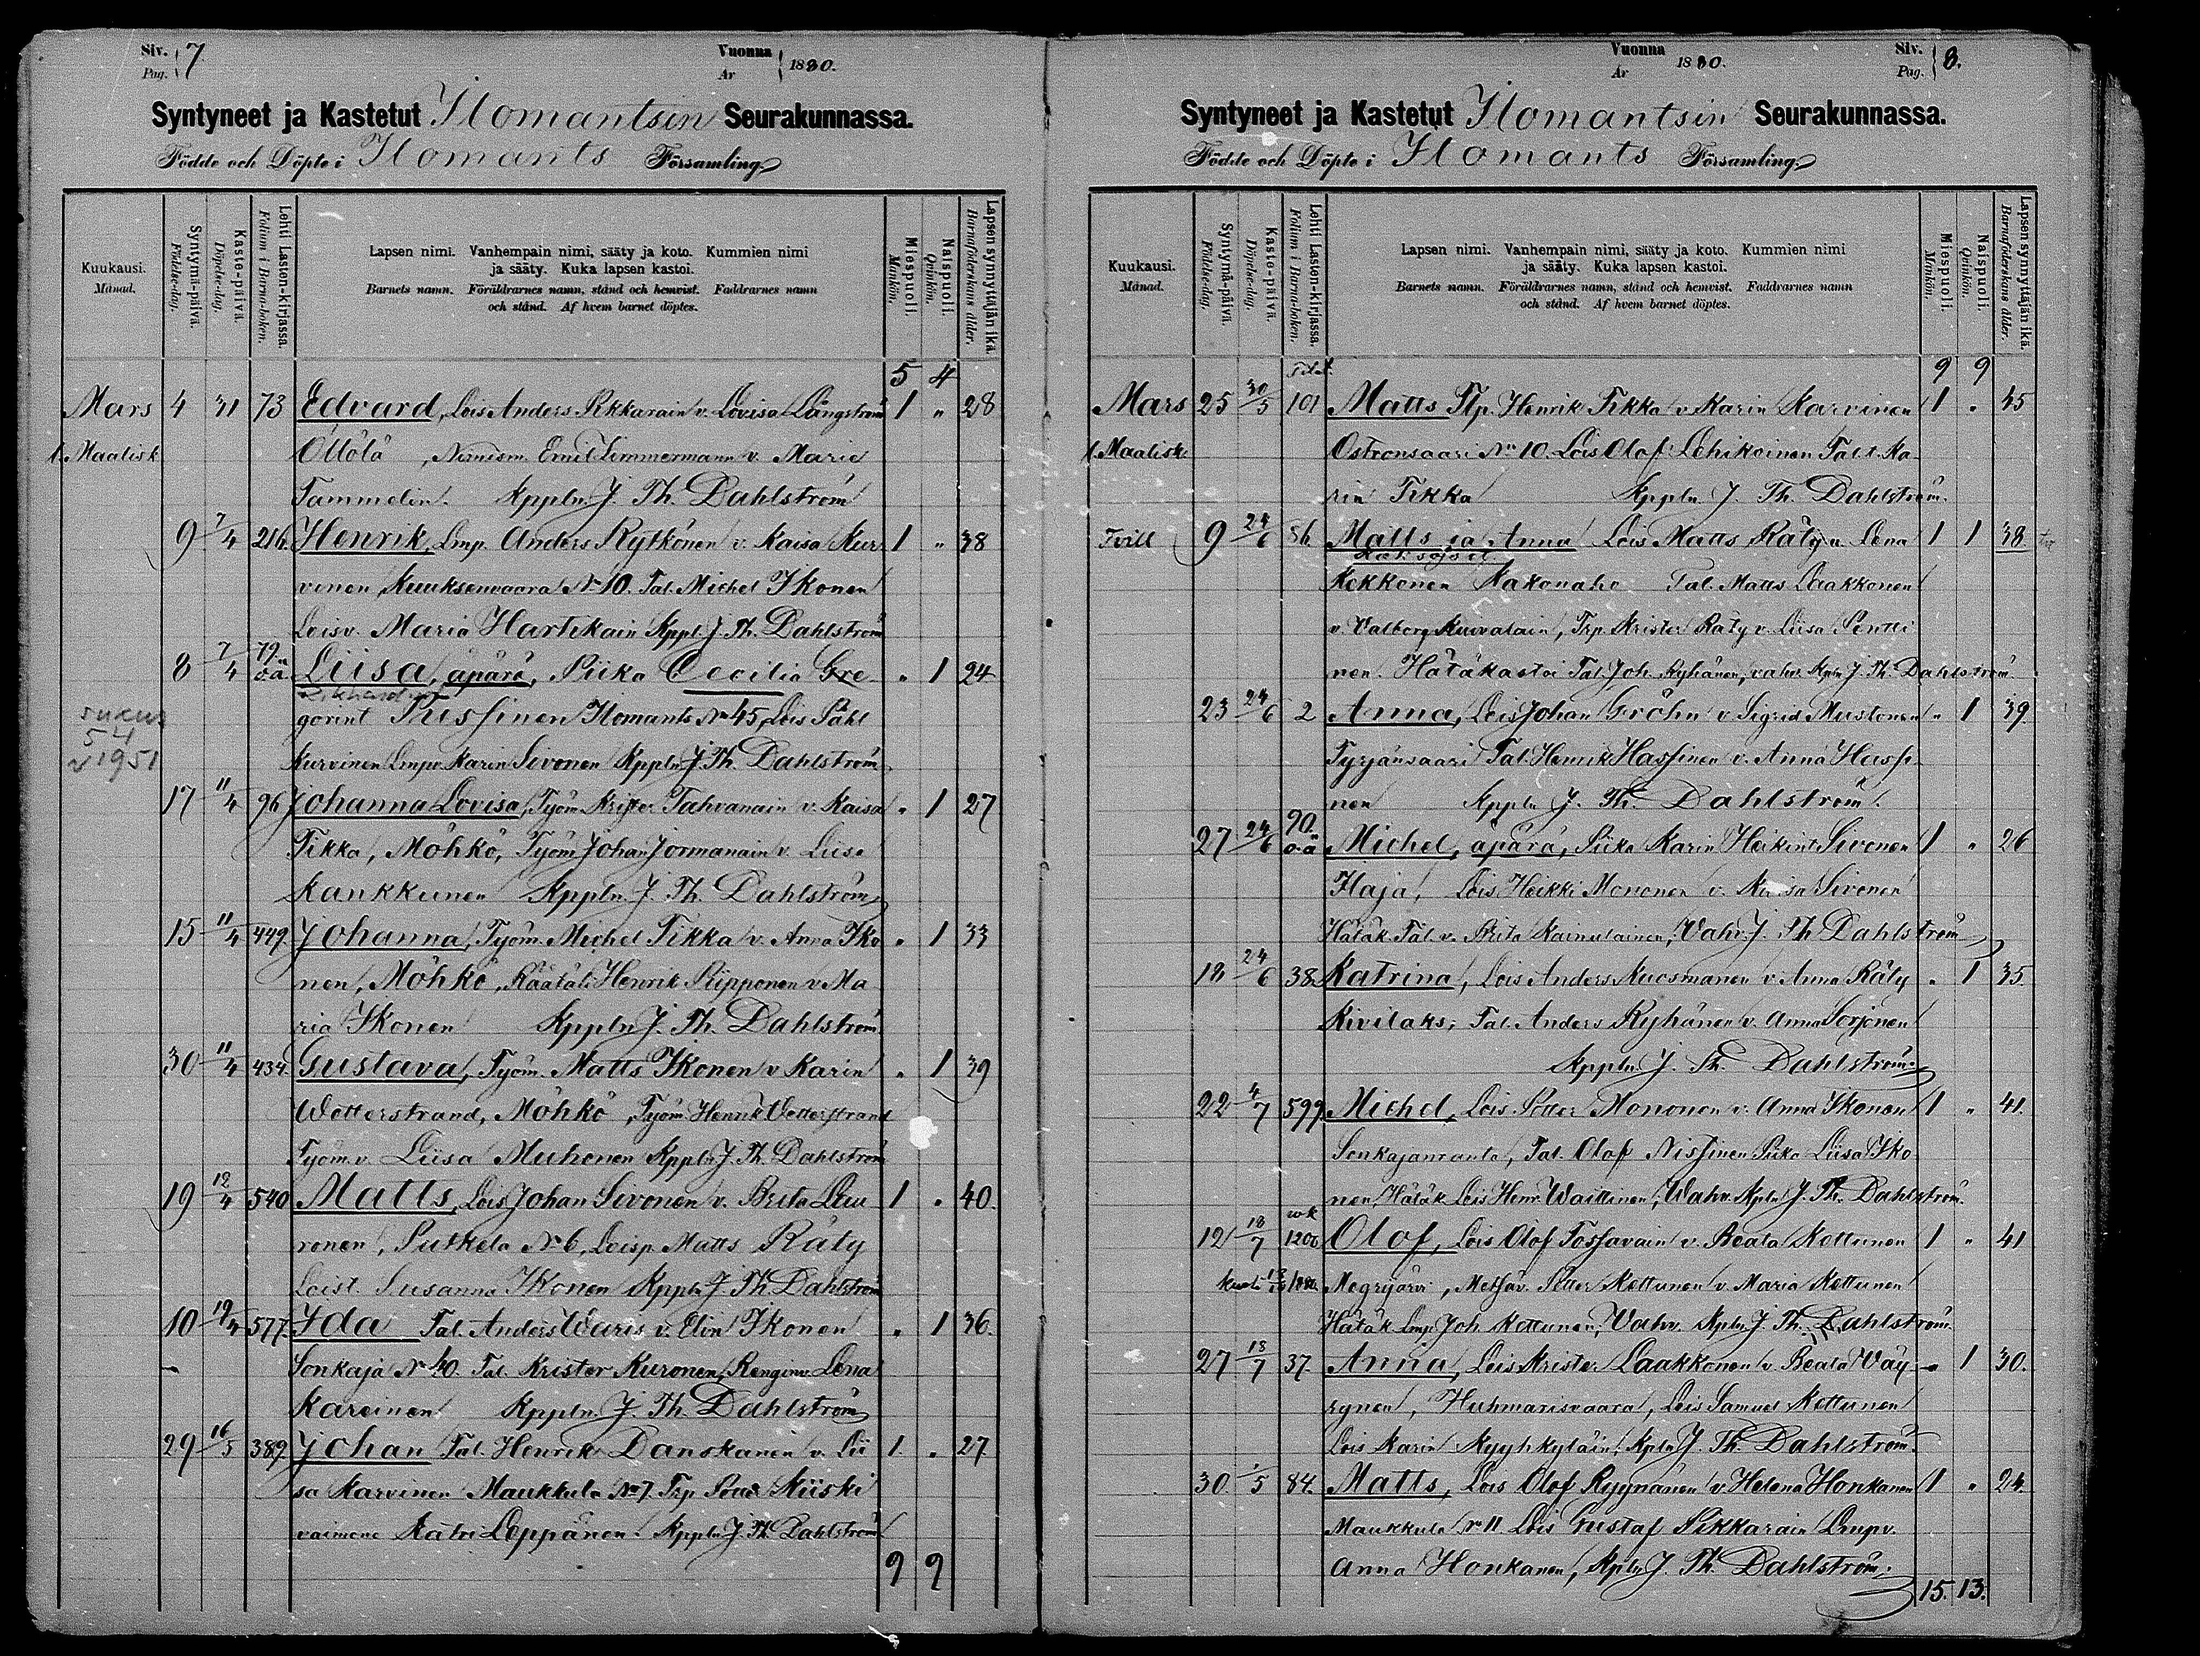 Siv. Pag. 7. Vuonna År 1880.
Syntyneet ja Kastetut Ilomantsin Seurakunnassa.
Födde och Döpte i Ilomants Församling.
Kuukausi. Månad.
Syntymä-päivä. Födelse-dag.
Kaste-päivä. Döpelse-dag.
Lehti Lasten-kirjassa. Folium i Barna-boken.
Lapsen nimi. Vanhempain nimi, sääty ja koto. Kummien nimi
ja sääty. Kuka lapsen kastoi.
Barnets namn. Föräldrarnes namn, stånd och hemvist. Faddrarnes namn
och stånd. Af hvem barnet döptes.
Miespuoli. Mankön.
Naispuoli. Qvinkön.
Lapsen synnyttäjän ikä. Barnaföderskans ålder.
5 4
Mars 4 31 73 Edvard, Lois Anders Pikkarain v. Lovisa Långström 1 " 28
l. Maalisk Öllölä, Nimism. Emil Timmermann v. Marie
Tammelin. Kppln J. Th. Dahlström
9 7/4 216 Henrik, Lmp. Anders Rytkönen v. Kaisa Kur 1 " 38
vinen, Kuuksenvaara No 10. Tal. Michel Ikonen
Loisv. Maria Hartikain Kppl. J. Th. Dahlström
8 7/4 79 o.ä. Liisa, äpärä, Piika Cecilia Gre " 1 24
gorint Prissinen Ilomants No 45, Lois Påhl
sukus 5 4 v 1951
Kurvinen Lmpv. Karin Sivonen Kppln J. Th. Dahlström
17 11/4 96 Johanna Lovisa, Työm. Krister Tahvanain v. Kaisa " 1 27
Tikka, Möhkö, Työm. Johan Jormanain v. Liisa
Kaukkunen Kppln J. Th. Dahlström
15 11/4 449 Johanna, Työm. Michel Tikka v. Anna Iko " 1 33
nen, Möhkö, Räätäli Henrik Piipponen v. Ma
ria Ikonen Kppln J. Th. Dahlström
30 11/4 434 Gustava, Työm. Matts Ikonen v. Karin " 1 39
Wetterstrand, Möhkö, Työm. Henrik Wetterstrand
Työm. v. Liisa Muhonen Kppln J. Th. Dahlström
19 12/4 540 Matts, Lois Johan Sivonen v. Brita Leu 1 " 40.
ronen, Putkela No 6, Loisp. Matts Räty
Loist. Susanna Ikonen Kppln J. Th. Dahlström
10 19/4 577 Ida Tal. Anders Waris v. Elin Ikonen " 1 36.
Sonkaja No 40. Tal. Krister Kuronen, Renginv. Lena
Kareinen Kppln. J. Th. Dahlström
29 16/5 389 Johan Tal. Henrik Danskanen v. Lii 1. " 27
sa Karvinen Maukkula No 7. Trp. Kiiski
vaimone Katri Leppänen. Kppln J. Th. Dahlström
9 9
Vuonna År 1880. Siv. Pag. 8.
Syntyneet ja Kastetut Ilomantsin Seurakunnassa.
Födde och Döpte i Ilomants Församling.
Kuukausi. Månad.
Syntymä-päivä. Födelse-dag.
Kaste-päivä. Döpelse-dag.
Lehti Lasten-kirjassa. Folium i Barna-boken.
Lapsen nimi. Vanhempain nimi, sääty ja koto. Kummien nimi
ja sääty. Kuka lapsen kastoi.
Barnets namn. Föräldrarnes namn, stånd och hemvist. Faddrarnes namn
och stånd. Af hvem barnet döptes.
Miespuoli. Mankön.
Naispuoli. Qvinkön.
Lapsen synnyttäjän ikä. Barnaföderskans ålder.
9 9
Mars 25 30/5 101 Matts Tlp. Henrik Tikka v. Karin Karvinen 1 " 45
l. Maalisk. Ostronsaari No 10. Lois Olof Lehikoinen Tal.t. Ka
rin Tikka Kppln J. Th. Dahlström.
Tvill 9 24/6 86 Matts ja Anna Lois Matts Räty v. Lena 1 1 38
Kaksoiset
Kekkonen Kakonaho Tal. Matts Laakkonen
v. Valborg Kuivalain, Trp. Krister Räty v. Liisa Pentti
nen. Hätäkastoi Tal. Joh. Ryhänen, vahv. Kpln J. Th. Dahlström
23 24/6 2 Anna, Lois Johan Gröhn v. Sigrid Mustonen " 1 39
Tyrjänsaari Tal. Henrik Hassinen v. Anna Hassi
nen Kppln J. Th. Dahlström.
27 24/6 90 o.ä. Michel, äpärä, Piika Karin Heikint. Sivonen 1 " 26
Ilaja, Lois Heikki Mononen v. Kaisa Sivonen
Hätäk. Tal. v. Brita Kainulainen, Vahv. J. Th Dahlström
18 24/6 38 Katrina, Lois Anders Kuosmanen v. Anna Räty " 1 35.
Kivilaks, Tal. Anders Ryhänen v. Anna Sorjonen
Kppln J. Th. Dahlström
22 4/7 599 Michel, Lois Petter Mononen v. Anna Ikonen 1 " 41.
Sonkajanranta, Tal. Olof Nissinen Piika Liisa Iko
nen, Hätäk Lois Henr. Waittinen, Wahv. Kpln J. Th. Dahlström.
12 18/7 Olof, Lois Olof Tossavain v. Beata Kettunen 1 " 41
Megrijärvi, Metsäv. Petter Kettunen v. Maria Kettunen
Hätäk Lmp. Joh. Kettunen, Vahv. Kpln J. Th. Dahlström.
27 18/7 37. Anna, Lois Krister Laakkonen v. Beata Väy " 1 30.
rynen, Huhmarisvaara, Lois Samuel Kettunen
Lois Karin Kyyhkyläin, Kpln J. Th. Dahlström.
30 /5 84. Matts, Lois Olof Ryynänen v. Helena Honkanen 1 " 24.
Maukkula No 11 Lois Gustaf Pikkarain Lmpv.
Anna Honkanen, Kpln J. Th. Dahlström.
15. 13.